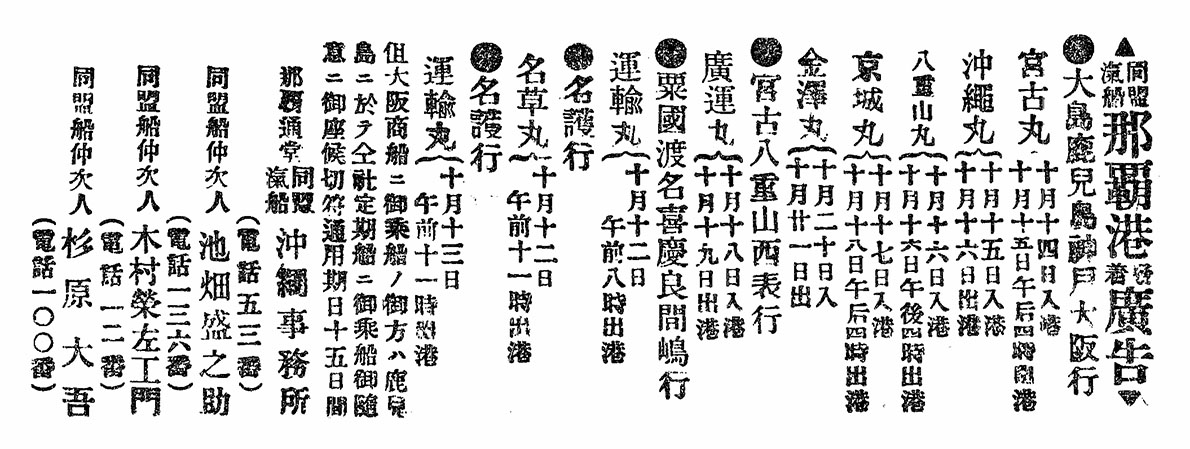 ▲同盟汽船那覇港発着廣告▼
●大島鹿兒島神戸大阪行
宮古丸 十月十四日入港
十月十五日午后四時出港
沖繩丸 十月十五日入港
十月十六日出港
八重山丸 十月十六日入港
十月十六日午後四時出港
京城丸 十月十七日入港
十月十八日午后四時出港
金澤丸 十月二十日入
十月廿一日出
●宮古八重山西表行
廣運丸 十月十八日入港
十月十九日出港
●粟國渡名喜慶良間嶋行
運輸丸 十月十二日
午前八時出港
●名護行
名草丸 十月十二日
午前十一時出港
●名護行
運輸丸 十月十三日
午前十一時出港
但大阪商船ニ御乗船ノ御方ハ鹿兒
島ニ於テ仝社定期船ニ御乘船御隨
意ニ御座候切符通用期日十五日間
那覇通堂 同盟汽船 沖繩事務所
(電話五三番)
同盟船仲次人 池畑盛之助
(電話一三六番)
同盟船仲次人 木村榮左工門
(電話一二番)
同盟船仲次人 杉原大吾
(電話一〇〇番)